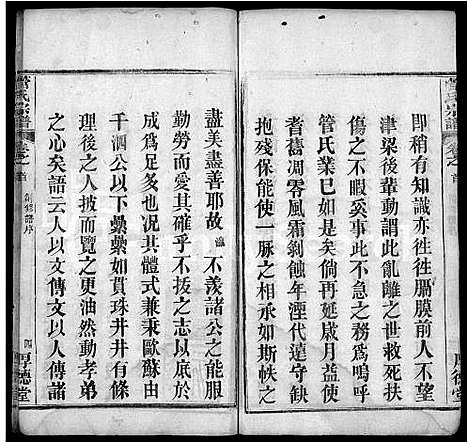 管氏宗譜 卷之首
即稍有知識亦徃徃膈膜前人不望
津梁後輩動謂此亂離之世優恤死
傷之不暇奚事此不急之務爲嗚呼
管氏業已如是矣倘再延歲月益使
耆舊凋零風霜剝蝕年湮代遠篤守
抱殘保能使一脉之相承如斯帙之
盡美盡善耶故 不羨諸公之能服
勤勞而愛其確乎不拔之志以底於
成爲足多也況其體式兼秉歐蘇由
千泗公以下纍纍如貫珠井井有條
理後之人披而覽之更油然動孝弟
之心矣語云人以文傳文以人傳諸
管氏宗譜 卷之首 創修譜序 四 厚德堂